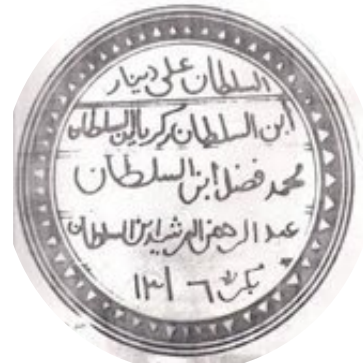 السلطان علي دينار
ابن السلطان زكريا ابن السلطان
محمد فضل ابن السلطان
عبد الرحمن الرشيد ابن السلطان